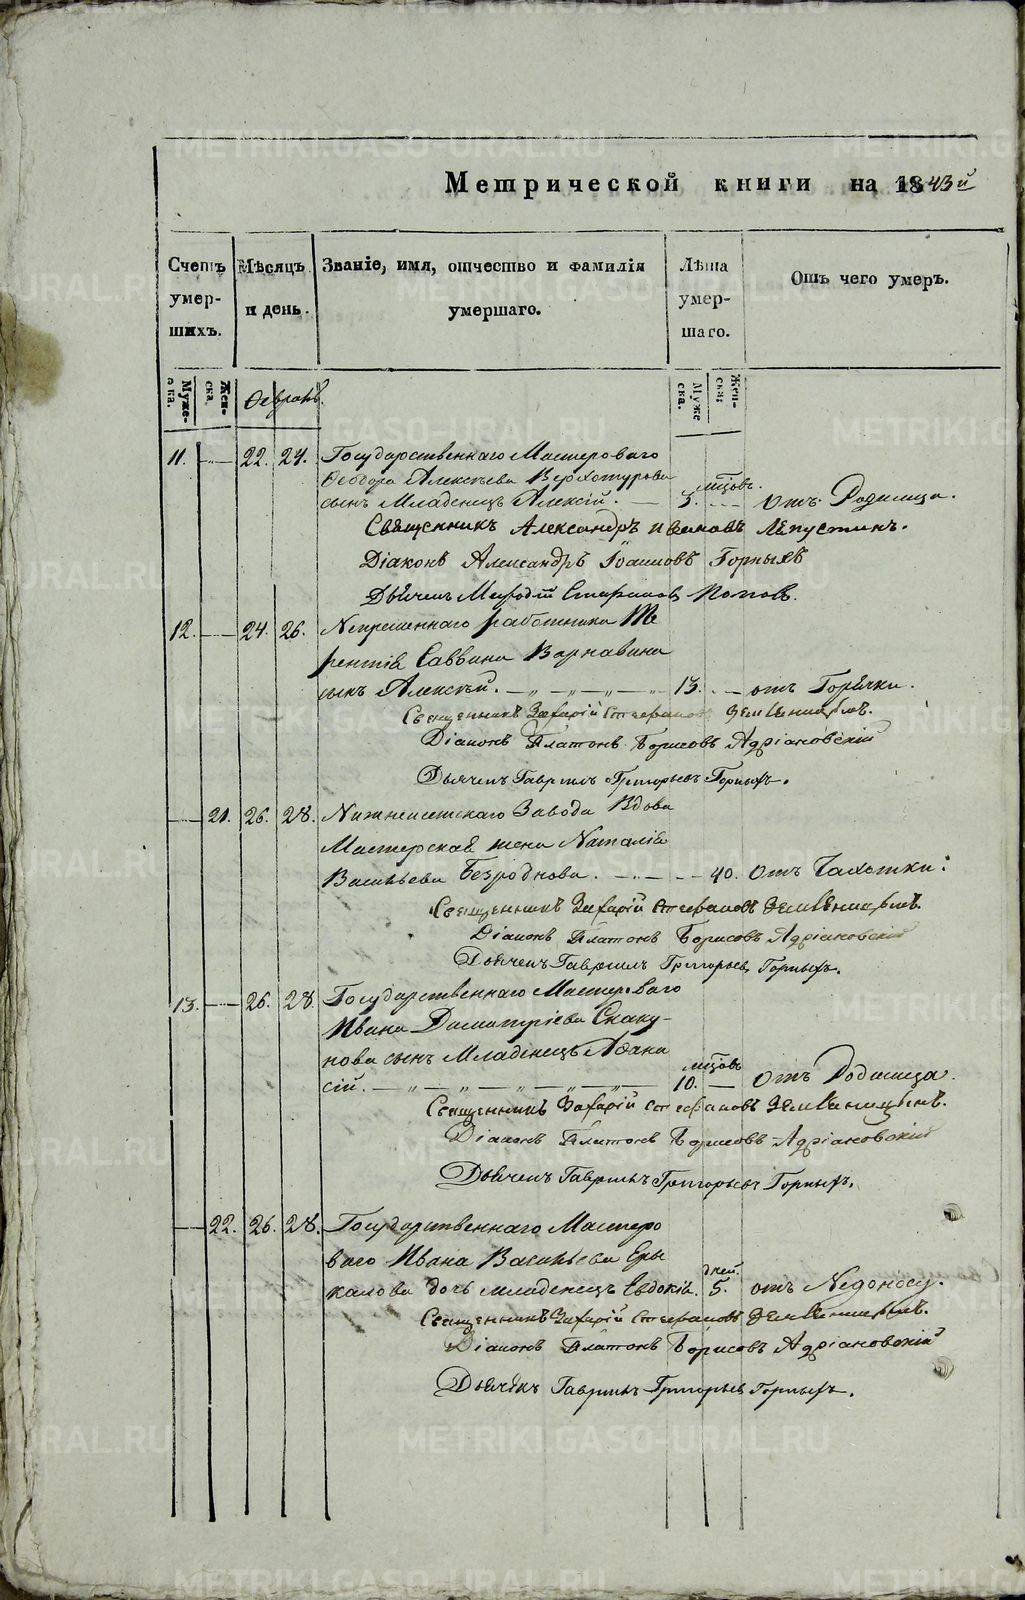 Метрической книги на 1843й
Счетъ умершихъ.
Мѣсяцъ и день.
Званіе, имя, отчество и фамилія умершаго.
Лѣта умершаго.
Отъ чего умеръ.
Мужеска. Женска. Февраль. Мужеска. Женска:
11. 22. 24. Государственнаго Мастероваго
Ѳеодора Алексѣева Верхотурова мцовъ.
сынъ Младенецъ Алексій. 5. отъ Родимца.
Священникъ Александръ Ивановъ Лепустинъ.
Діаконъ Александръ Іоанновъ Горныхъ
Дьячекъ Меѳодій Стефановъ Поповъ.
12. 24. 26. Непременнаго работника Те
рентія Саввина Варнавина
сынъ Алексѣй. 13. отъ Горячки.
Священникъ Захарій Стефановъ Земляницынъ.
Діаконъ Платонъ Борисовъ Адріановскій
Дьячекъ Гаврилъ Григорьевъ Горныхъ.
21. 26. 28. Нижнеисетскаго Завода Вдова
Мастерская жена Наталія
Васильева Безроднова. 40. Отъ Чахотки:
Священникъ Захарій Стефановъ Земляницынъ.
Діаконъ Платонъ Борисовъ Адріановскій
Дьячекъ Гаврилъ Григорьевъ Горныхъ.
13. 26. 28. Государственнаго Мастероваго
Ивана Димитріева Скаку-
нова сынъ Младенецъ Аѳана мцовъ
сій. 10. Отъ Родимца.
Священникъ Захарій Стефановъ Земляницынъ.
Діаконъ Платонъ Борисовъ Адріановскій
Дьячекъ Гаврилъ Григорьевъ Горныхъ.
22. 26. 28. Государственнаго Мастеро
ваго Ивана Васильева Еры дней.
калова дочь младенецъ Евдокія. 5. отъ Недоносу.
Священникъ Захарій Стефановъ Земляницынъ.
Діаконъ Платонъ Борисовъ Адріановскій
Дьячекъ Гаврилъ Григорьевъ Горныхъ.
METRIKI.GASO-URAL.RU